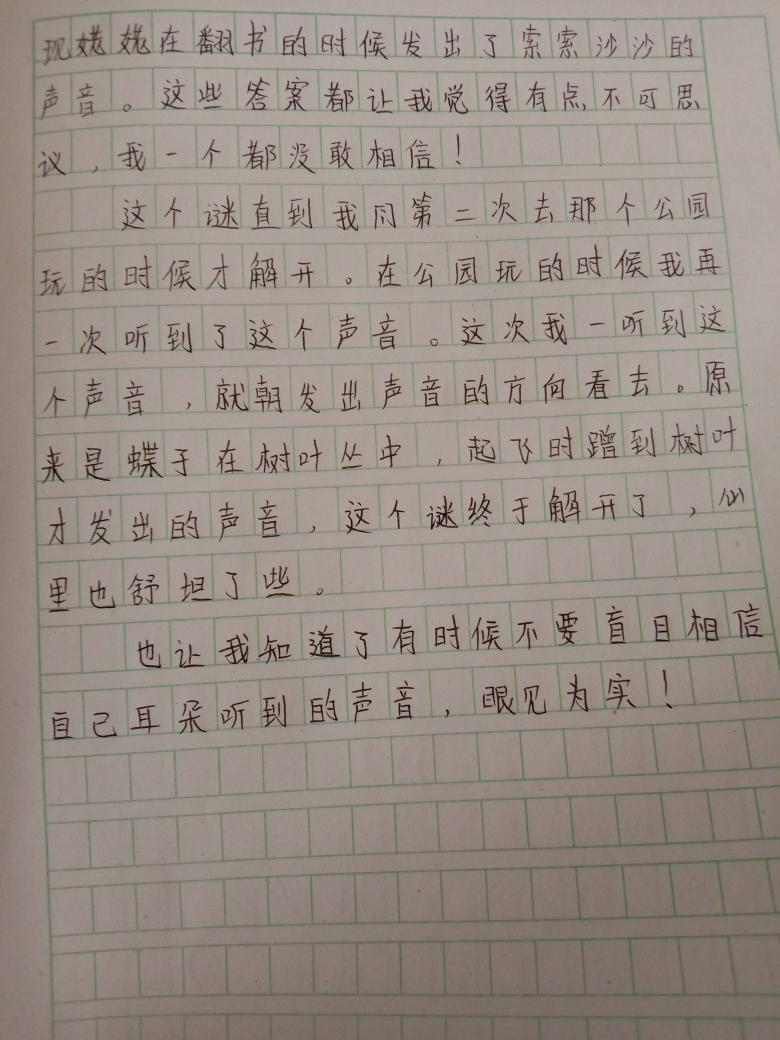 现姥姥在翻书的时候发出了索索沙沙的
声音。这些答案都让我觉得有点不可思
议，我一个都没敢相信！
这个谜直到我同第二次去那个公园
玩的时候才解开。在公园玩的时候我再
一次听到了这个声音。这次我一听到这
个声音，就朝发出声音的方向看去。原
来是蝶于在树叶丛中，起飞时蹭到树叶
才发出的声音，这个谜终于解开了，心
里也舒坦了些。
也让我知道了有时候不要盲目相信
自己耳朵听到的声音，眼见为实！